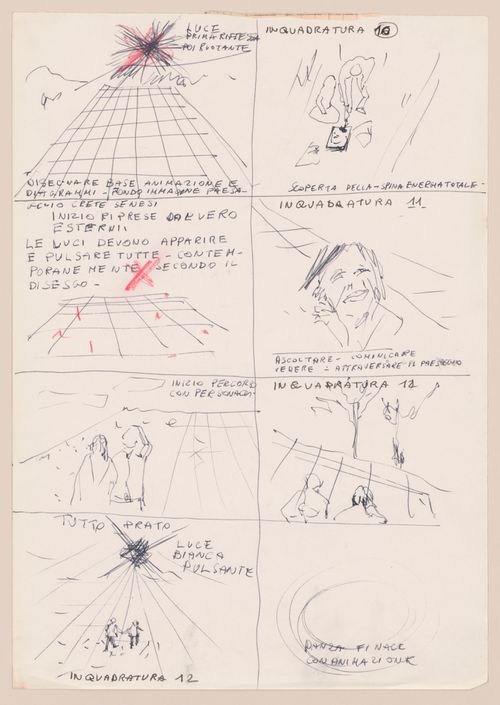 LUCE
PRIMA RIFLESSA
POI RUOTANTE
DISEGNARE BASE ANIMAZIONE E
DIAGRAMMI - FONDO IMMAGINE PAESA-
GGIO CRETE SENESI
INIZIO RIPRESE DAL VERO
ESTERNI
LE LUCI DEVONO APPARIRE
E PULSARE TUTTE - CONTEM-
PORANEAMENTE SECONDO IL
DISEGNO -
INIZIO PERCORSO
CON PERSONAGGI
TUTTO PRATO
LUCE
BIANCA
PULSANTE
INQUADRATURA 12
INQUADRATURA 10
SCOPERTA DELLA - SPINA ENERGIA TOTALE -
INQUADRATURA 11
ASCOLTARE - COMUNICARE
VEDERE - ATTRAVERSARE IL PAESAGGIO
INQUADRATURA 12
DANZA FINALE
CON ANIMAZIONE